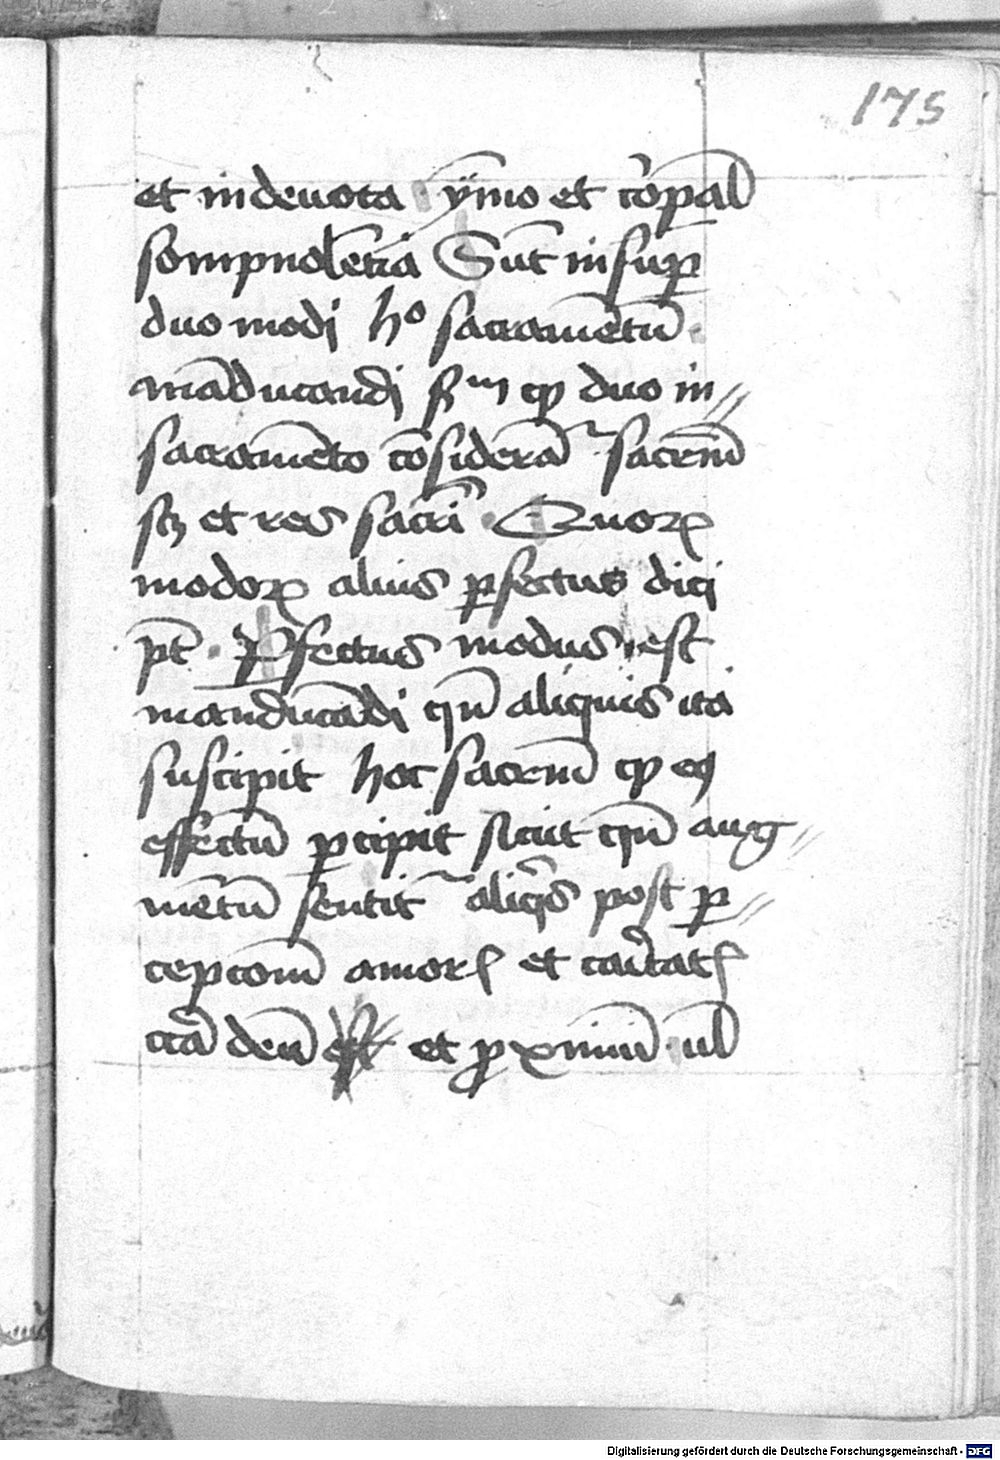 175
et indeuota ẏmo et corꝑal
sompnolētia Sūt insuꝑ
duo modi hº sacramētū
māducandi sm ꝙ duo in⸗
sacramēto cōsiderāt᷑ sacrm̄
scꝫ et res sacri᷑ Quorꝝ
modorꝝ alius ꝑfectus dici
pt̄ · Ꝑfectus modus est
manducādi qn̄ aliquis ita
suscipit hoc sacrm̄ ꝙ eꝯ
effectū ꝑcipit sicut qn̄ aug⸗
mētū sentit᷑ aliqⁱs post ꝑ⸗
cepcom̄ amorꝭ et caritatꝭ
cͣ deū et ꝓximū ul
Digitalisierung gefördert durch die Deutsche Forschungsgemeinschaft - DFG